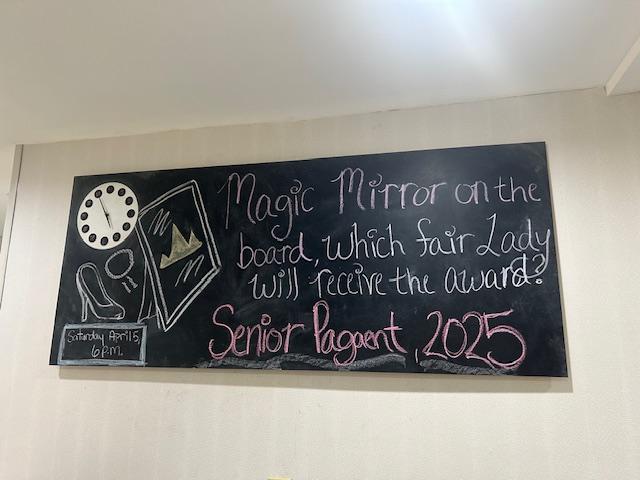 Magic Mirror on the
board, which fair Lady
will receive the award?
Senior Pagaent, 2025
Saturday April 5,
6 p.m.